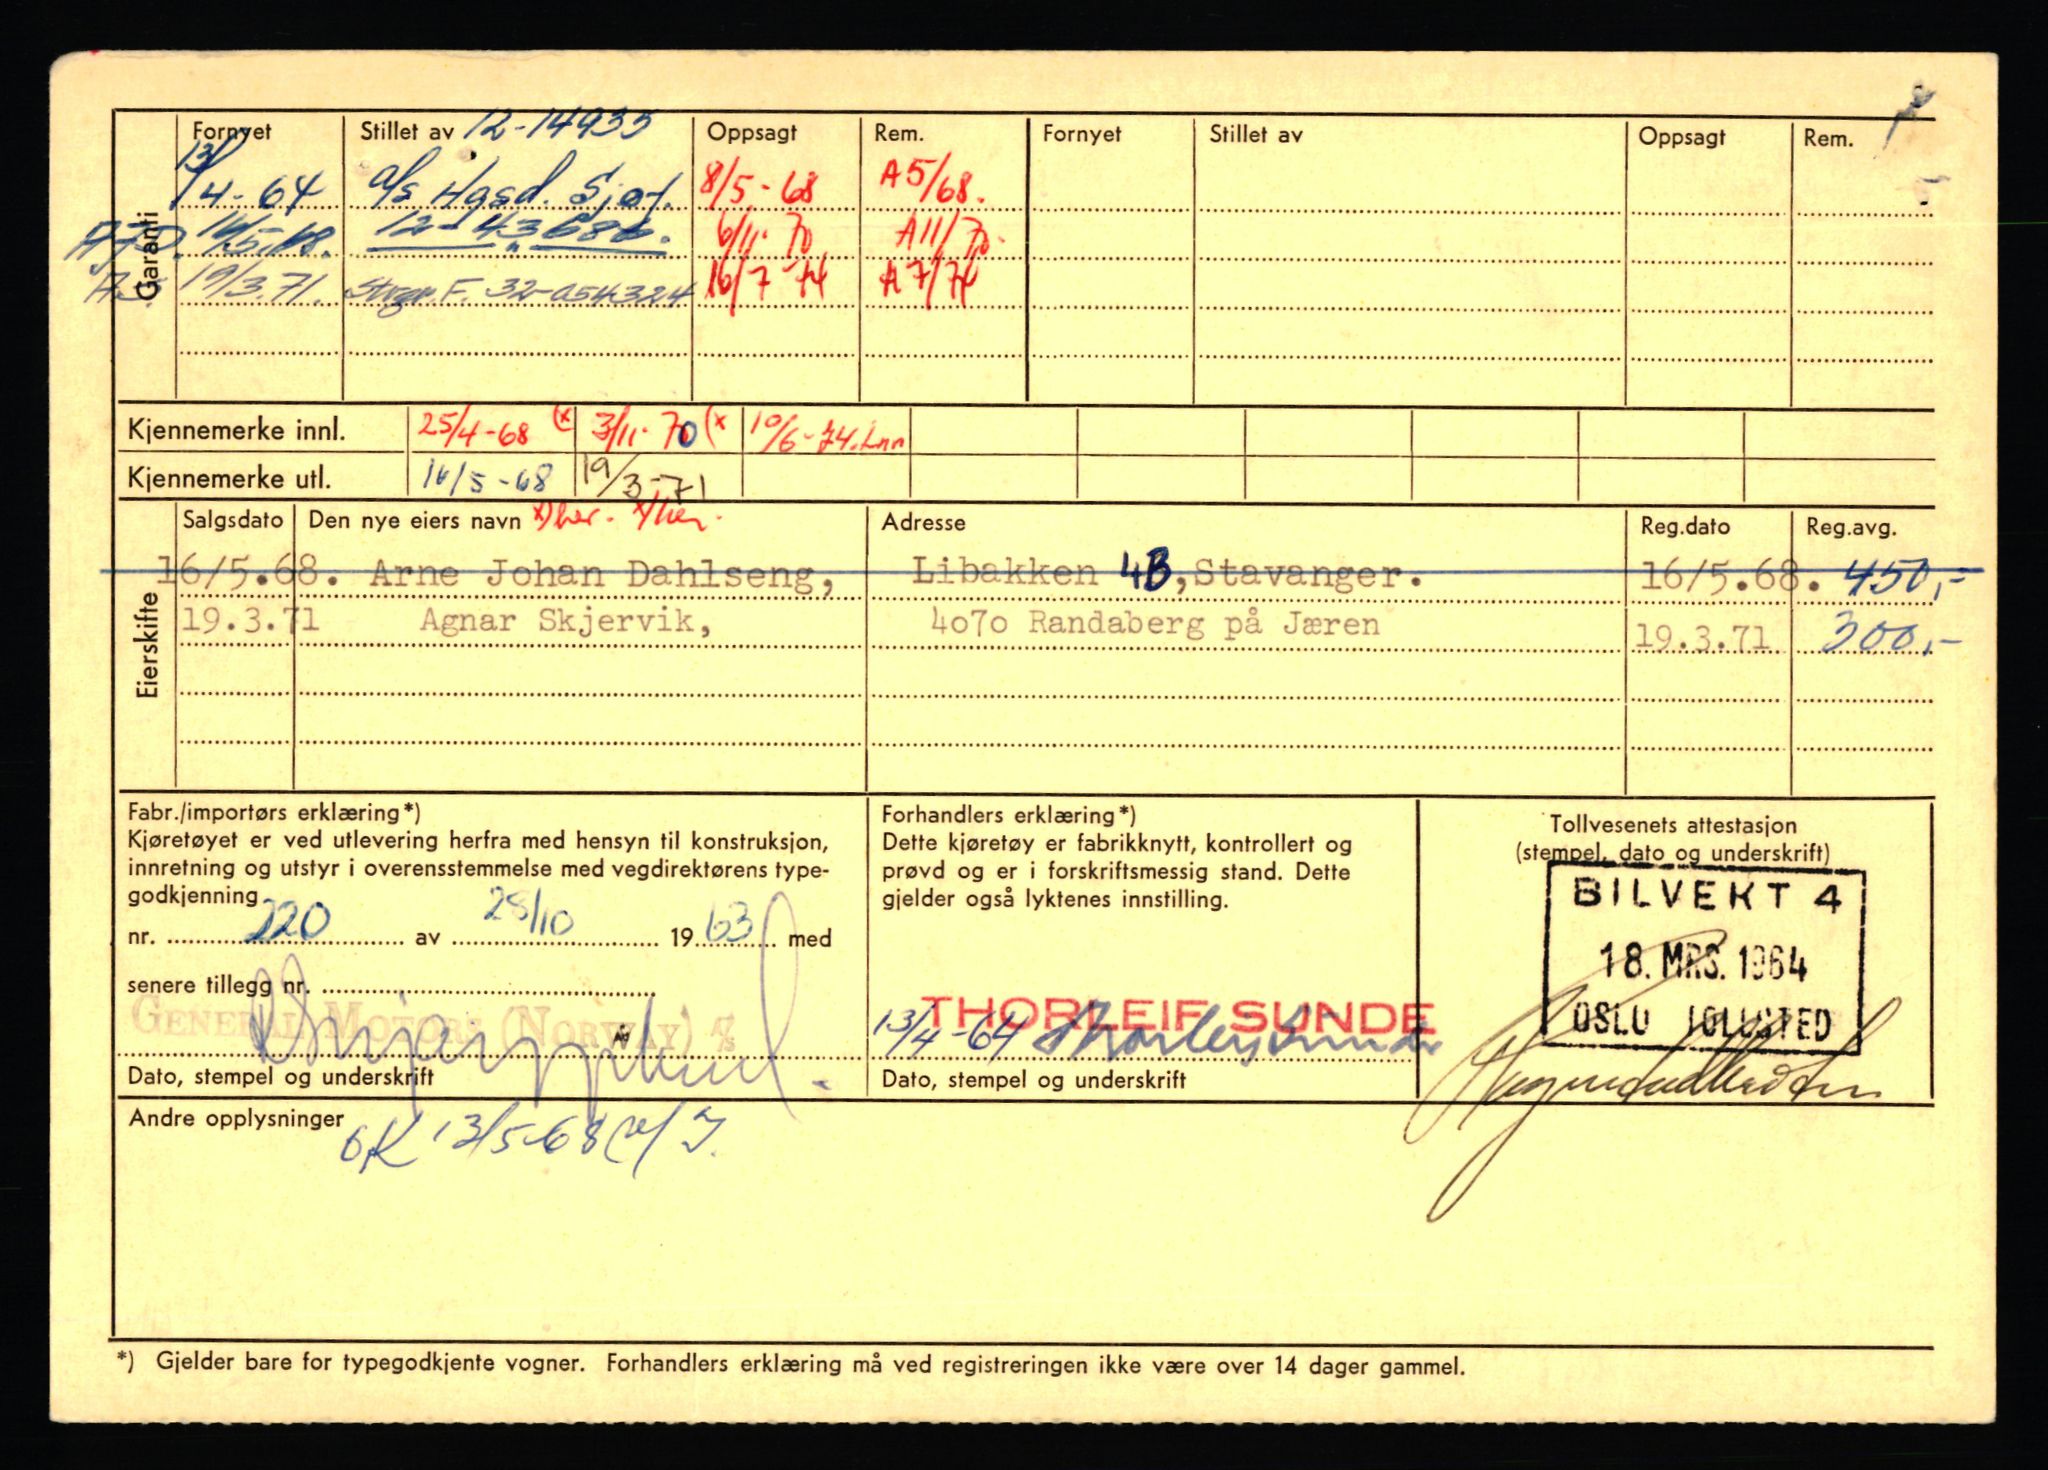 Garanti
Fornyet Stillet av 12-14935 Oppsagt Rem. Fornyet Stillet av Oppsagt Rem.
13/4-64 a/s Hgsd. Sjøf. 8/5-68 A5/68.
16/5.68. 12-43686. 6/11-70 A11/70.
19/3.71. F. 32-054324 16/7-74 A7/74
Kjennemerke innl. 25/4-68 (x 3/11-70 (x 10/6-74.
Kjennemerke utl. 16/5-68 19/3-71
Eierskifte
Salgsdato Den nye eiers navn x) her. x) her. Adresse Reg.dato Reg.avg.
16/5.68. Arne Johan Dahlseng, Libakken 4B, Stavanger. 16/5.68. 450,-
19.3.71 Agnar Skjervik, 4070 Randaberg på Jæren 19.3.71 300,-
Fabr./importørs erklæring*)
Kjøretøyet er ved utlevering herfra med hensyn til konstruksjon,
innretning og utstyr i overensstemmelse med vegdirektørens type-
godkjenning
nr. 220 av 28/10 1963 med
senere tillegg nr.
GENERAL MOTORS (NORWAY) A/S
Dato, stempel og underskrift
Forhandlers erklæring*)
Dette kjøretøy er fabrikknytt, kontrollert og
prøvd og er i forskriftsmessig stand. Dette
gjelder også lyktenes innstilling.
THORLEIF SUNDE
13/4-64 Thorleif Sunde
Dato, stempel og underskrift
Tollvesenets attestasjon
(stempel, dato og underskrift)
BILVEKT 4
18. MRS. 1964
OSLO TOLLSTED
Andre opplysninger
OK 13/5-68
*) Gjelder bare for typegodkjente vogner. Forhandlers erklæring må ved registreringen ikke være over 14 dager gammel.